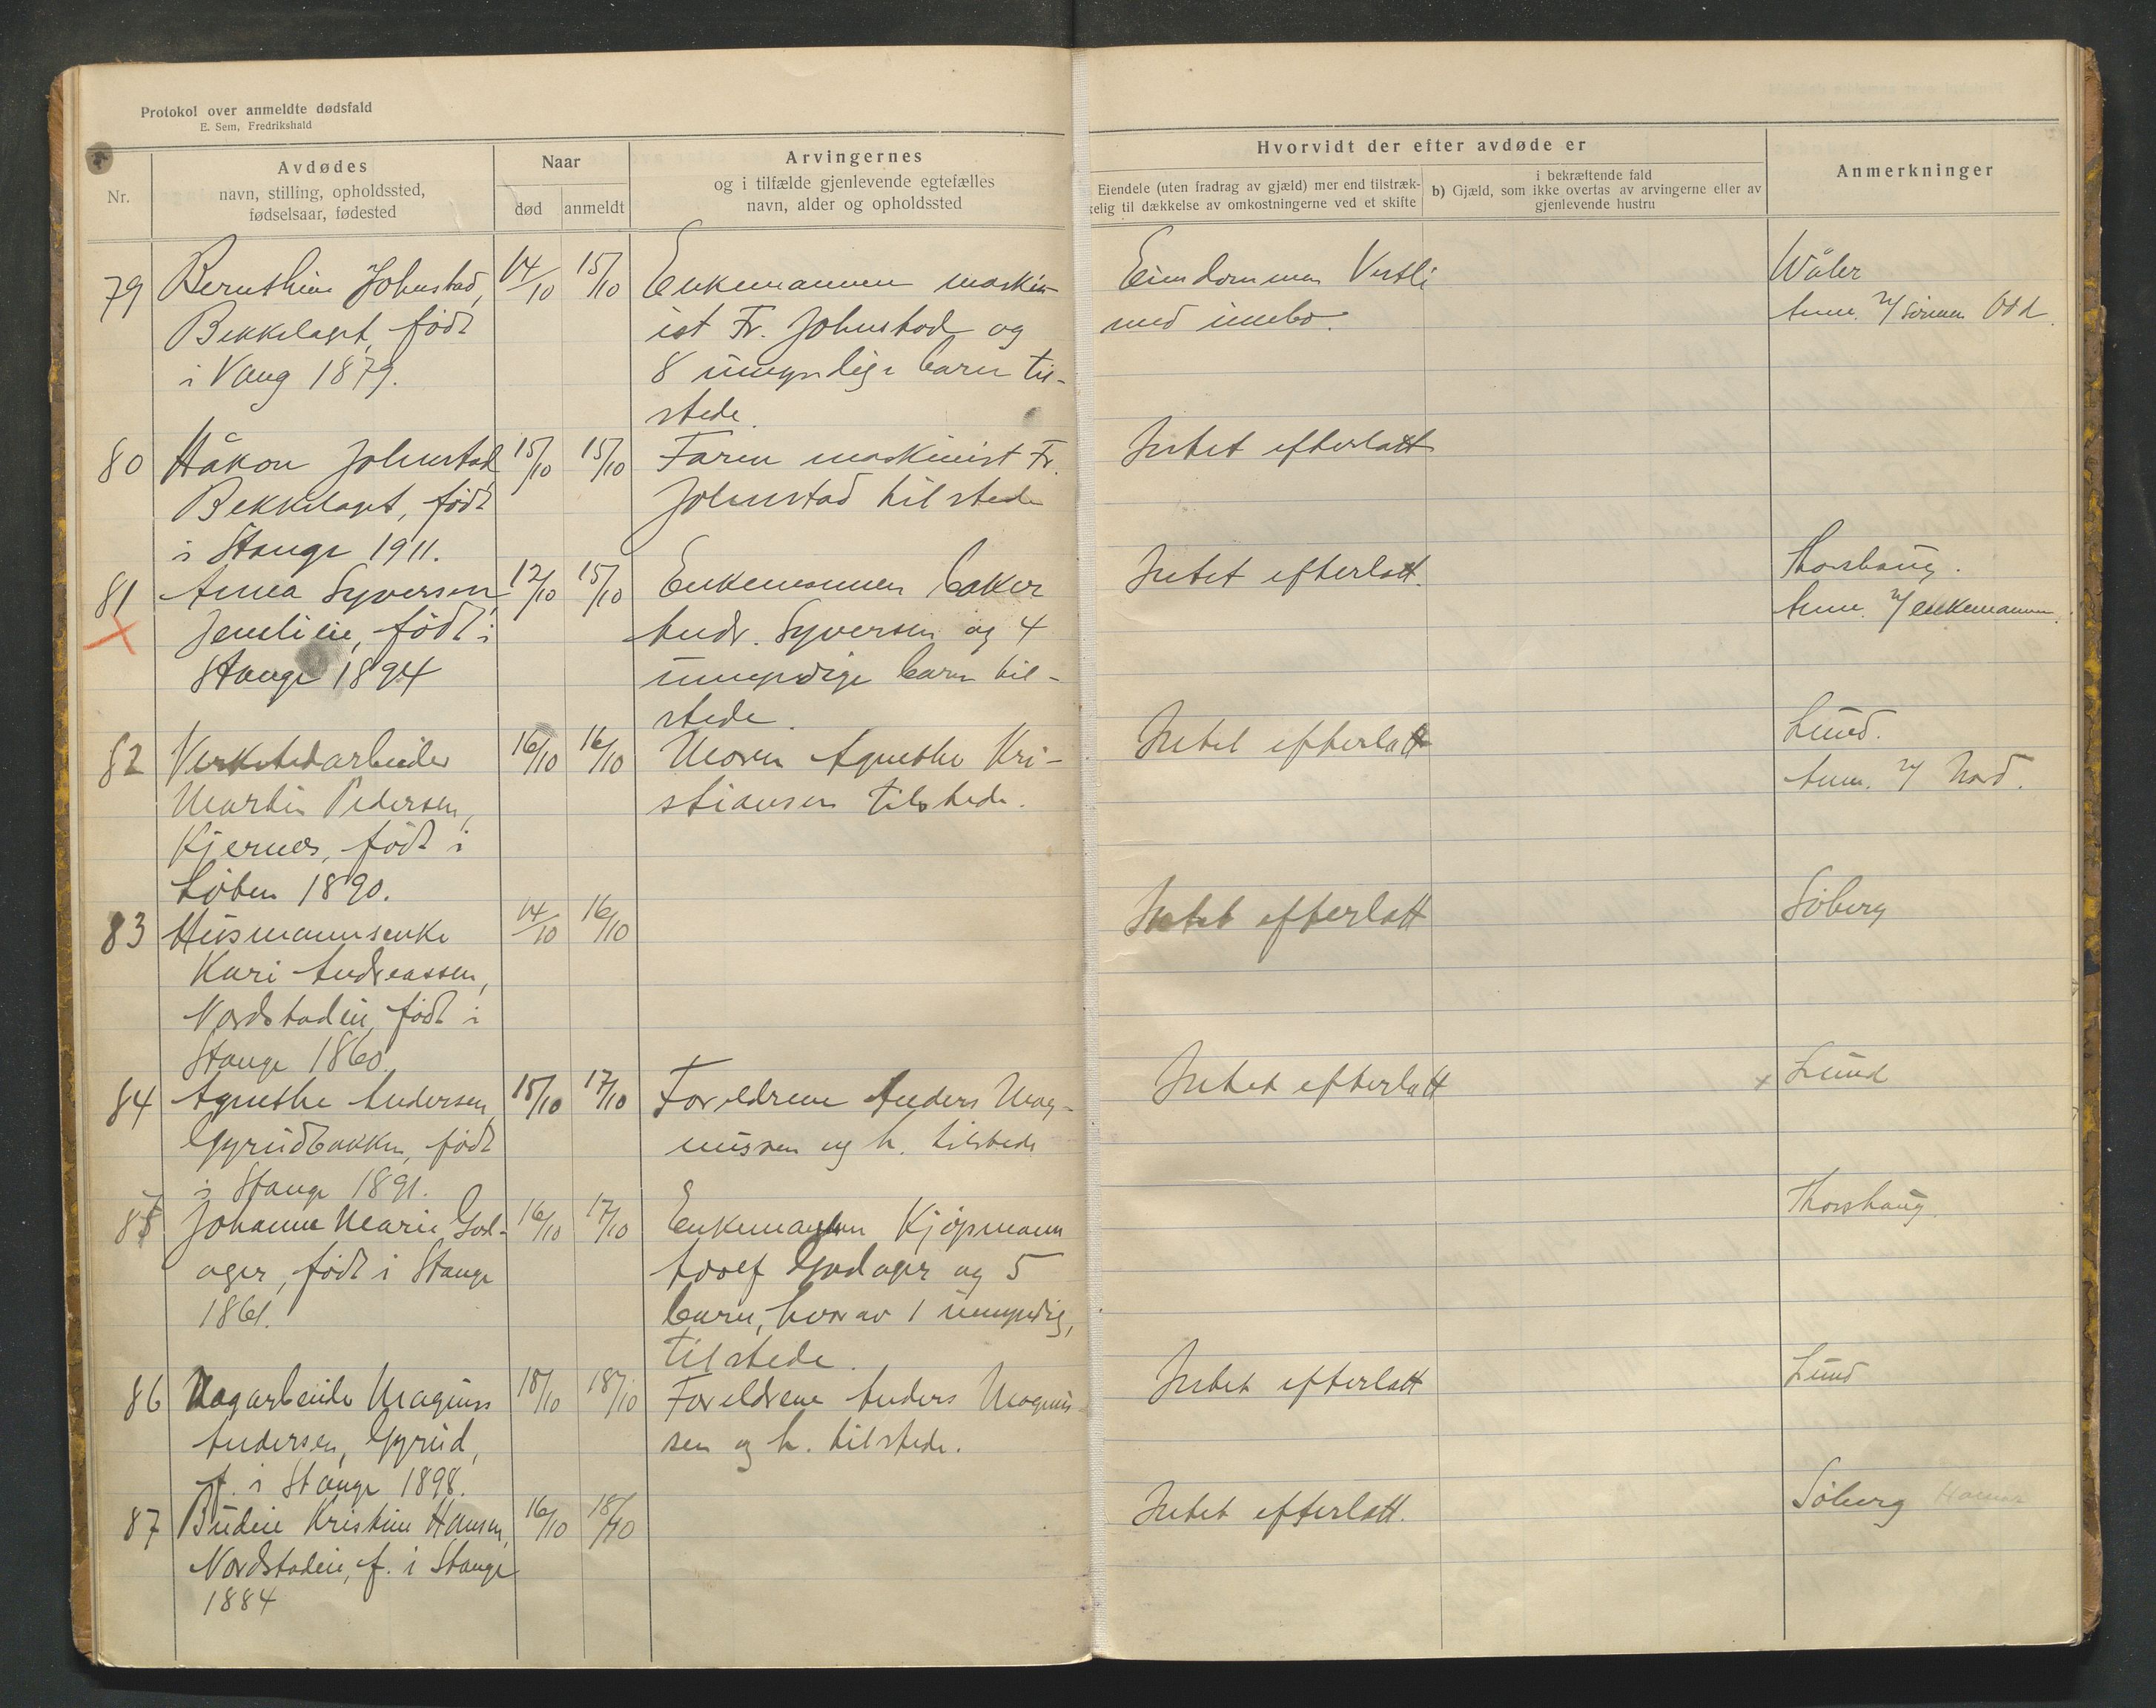 Protokol over anmeldte dødsfald
E. Sem, Fredrikshald
Nr.
Avdødes
navn, stilling, opholdssted,
fødselsaar, fødested
Naar
død anmeldt
Arvingernes
og i tilfælde gjenlevende egtefælles
navn, alder og opholdssted
Hvorvidt der efter avdøde er
Eiendele (uten fradrag av gjæld) mer end tilstræk-
kelig til dækkelse av omkostningerne ved et skifte
i bekræftende fald
b) Gjæld, som ikke overtas av arvingerne eller av
gjenlevende hustru
Anmerkninger
79 Bernthine Johnstad, 14/10 15/10 Enkemannen maskin- Eiendommen Vestli Wåler
Bekkelaget, født ist Fr. Johnstad og med innbo. Anm.
i Vang 1879. 8 umyndige barn til-
stede.
80 Håkon Johnstad, 15/10 15/10 Faren maskinist Fr. Intet efterlatt
Bekkelaget, født Johnstad tilstede
i Stange 1911.
81 Anna Syversen 12/10 15/10 Enkemannen baker Intet efterlatt. Thorshaug.
Jemlieie, født i Andr. Syversen og 4 Anm. v/ enkemannen.
Stange 1894 umyndige barn til-
stede.
82 Verkstedarbeider 16/10 16/10 Moren Agnethe Kri- Intet efterlatt Lund.
Martin Pedersen, stiansen tilstede. Anm. v/
Kjernes, født i
Løten 1890.
83 Husmannsenke 14/10 16/10 Intet efterlatt Søberg
Kari Andreassen,
Nordstadeie, født i
Stange 1860.
84 Agnethe Andersen, 15/10 17/10 Foreldrene Anders Mag- Intet efterlatt x Lund
Gyrudbakken, født nussen og h. tilstede
i Stange 1891.
85 Johanne Marie God- 16/10 17/10 Enkemannen Kjøpmann Thorshaug.
ager, født i Stange Adolf Godager og 5
1861. barn, hvorav 1 umyndig,
tilstede.
86 Dagarbeider Magnus 18/10 18/10 Foreldrene Anders Magnus- Intet efterlatt Lund
Andersen, Gyrud, sen og h. tilstede.
f. i Stange 1898.
87 Budeie Kristine Hansen, 16/10 18/10 Intet efterlatt. Søberg Hamar
Nordstadeie, f. i Stange
1884